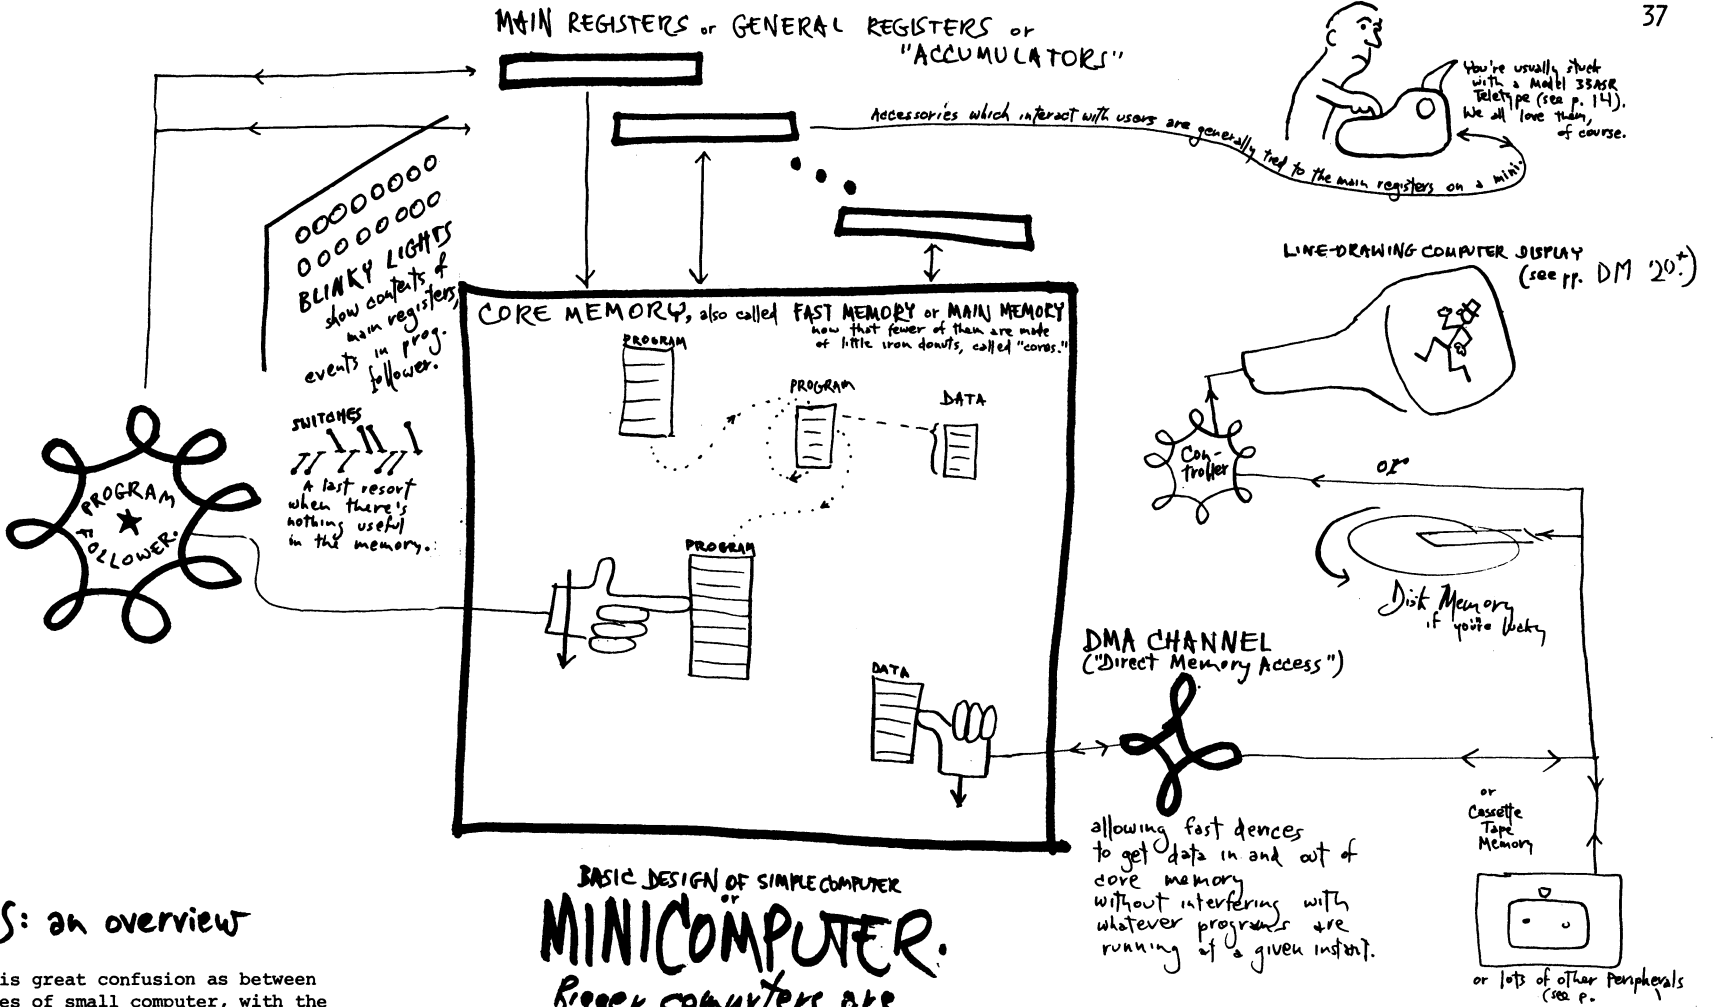 37
MAIN REGISTERS or GENERAL REGISTERS or
"ACCUMULATORS"
You're usually stuck
with a Model 33ASR
Teletype (see p. 14).
We all love them,
of course.
Accessories which interact with users are generally tied to the main registers on a mini.
BLINKY LIGHTS
show contents of
main registers,
events in prog.
follower.
SWITCHES
A last resort
when there's
nothing useful
in the memory.
PROGRAM
FOLLOWER.
CORE MEMORY, also called FAST MEMORY or MAIN MEMORY
now that fewer of them are made
of little iron donuts, called "cores."
PROGRAM
PROGRAM
DATA
PROGRAM
DATA
LINE-DRAWING COMPUTER DISPLAY
(see pp. DM
Con-
troller
or
Disk Memory
if you're lucky
DMA CHANNEL
("Direct Memory Access")
allowing fast devices
to get data in and out of
core memory
without interfering with
whatever programs are
running at a given instant.
or
Cassette
Tape
Memory
or lots of other Peripherals
(see p.
BASIC DESIGN OF SIMPLE COMPUTER
or
MINICOMPUTER.
Bigger computers are
S: an overview
is great confusion as between
es of small computer, with the